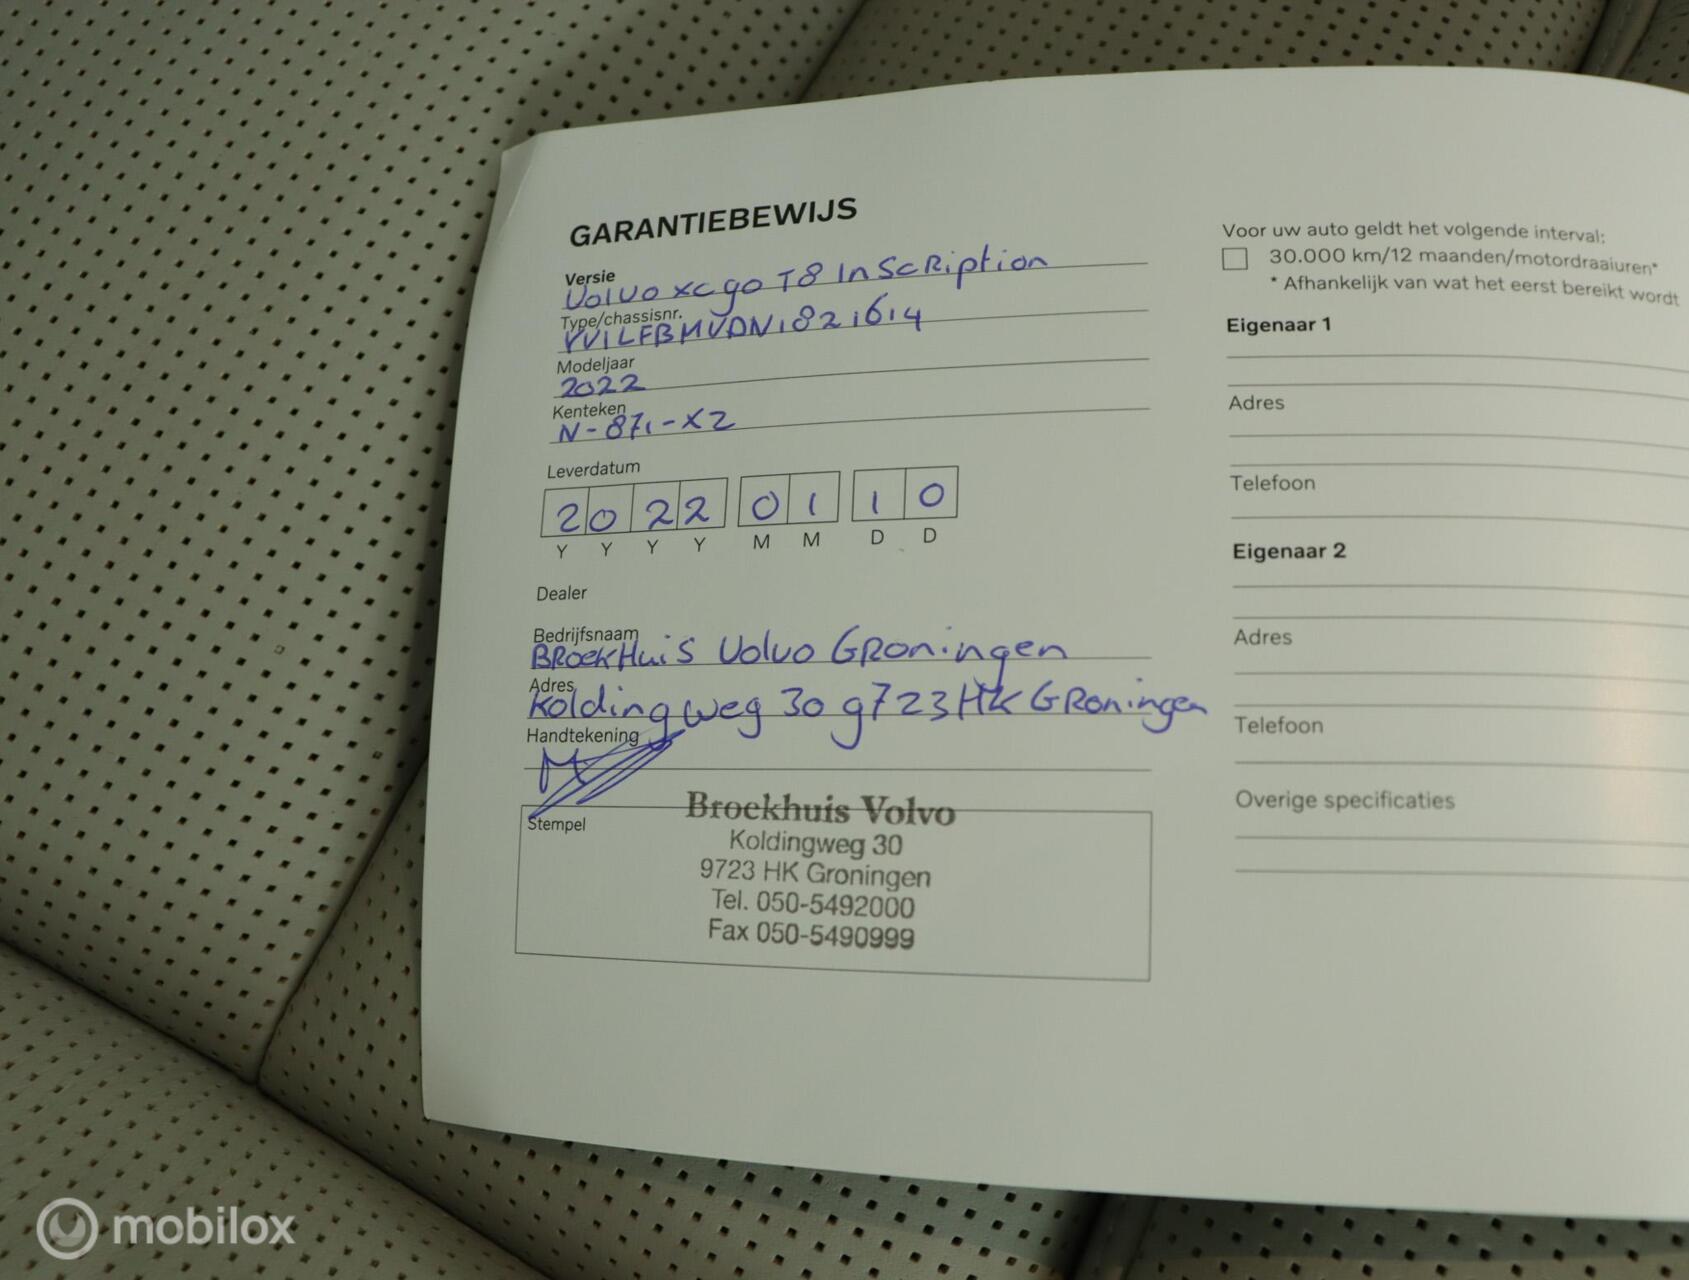 GARANTIEBEWIJS
Versie
Volvo xc90 T8 InScRiption
Type/chassisnr.
YV1LFBMVDN1821614
Modeljaar
2022
Kenteken
N-871-XZ
Leverdatum
2022 01 10
Y Y Y Y M M D D
Dealer
Bedrijfsnaam
BRoekHuiS Volvo GRoningen
Adres
Koldingweg 30 9723HK GRoningen
Handtekening
Stempel
Broekhuis Volvo
Koldingweg 30
9723 HK Groningen
Tel. 050-5492000
Fax 050-5490999
Voor uw auto geldt het volgende interval:
30.000 km/12 maanden/motordraaiuren*
* Afhankelijk van wat het eerst bereikt wordt
Eigenaar 1
Adres
Telefoon
Eigenaar 2
Adres
Telefoon
Overige specificaties
mobilox